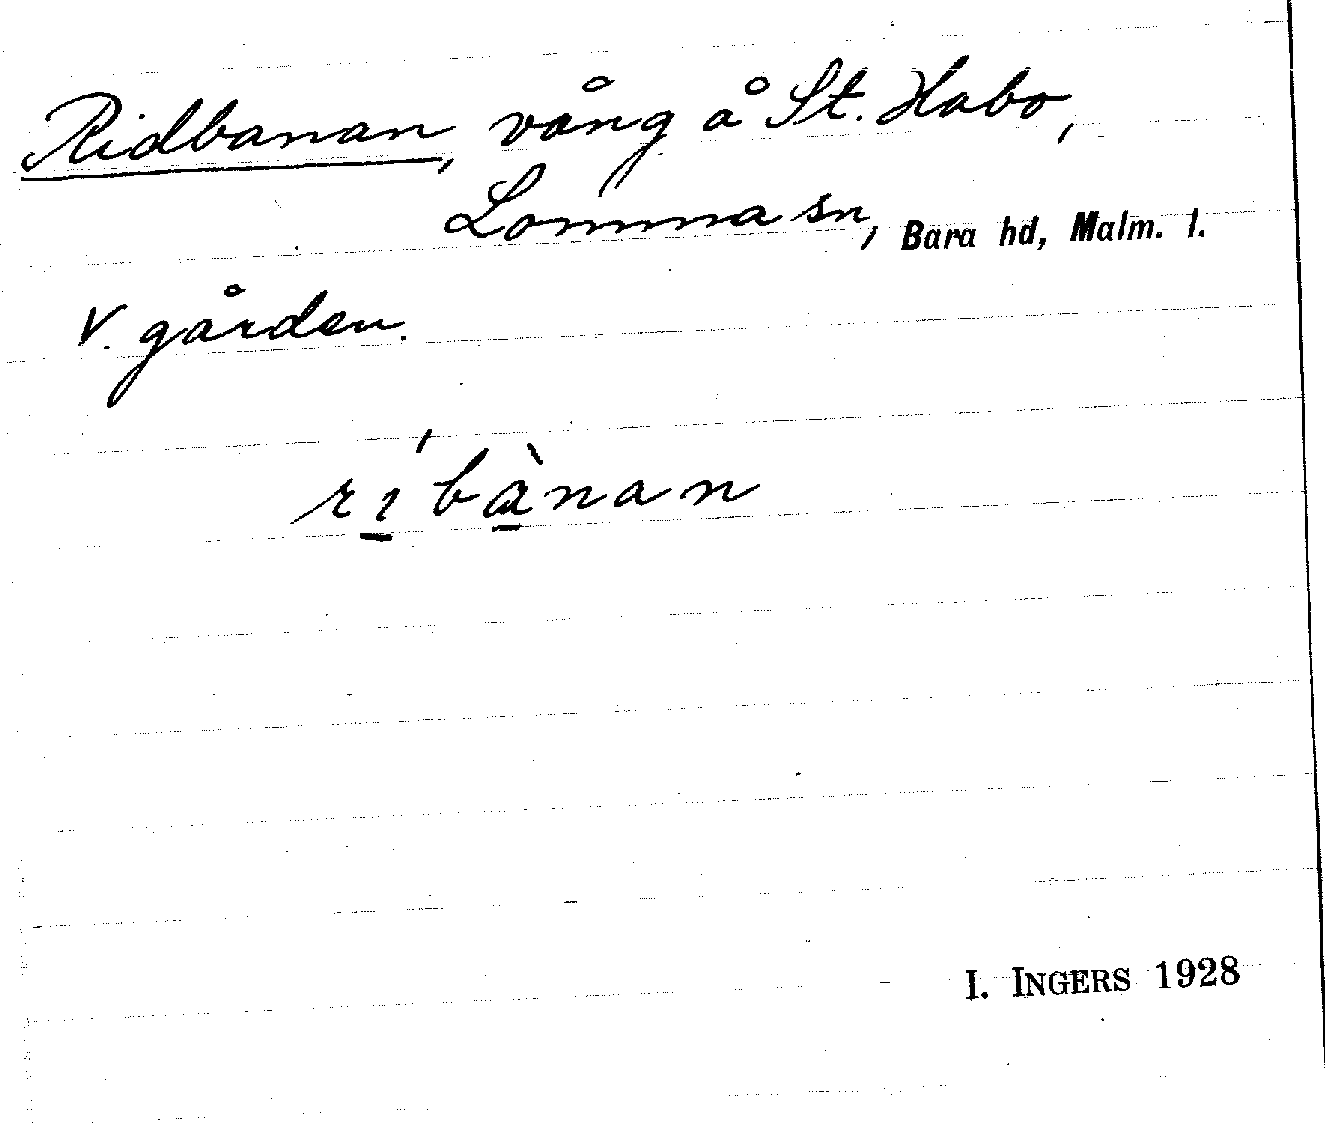 Ridbanan, vång å St. Habo,
Lomma sn, Bara hd, Malm. l.
V. gården.
ri̱´bà̱nan
I. INGERS 1928